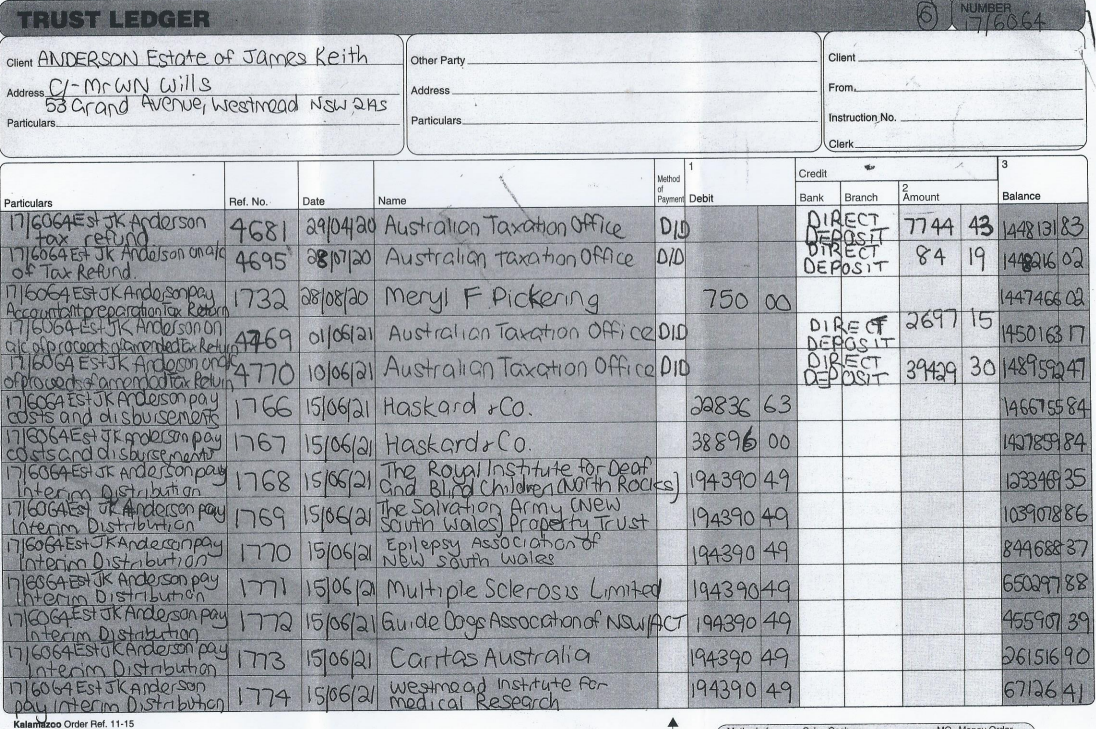 TRUST LEDGER
6
NUMBER
17/6064
Client ANDERSON Estate of James Keith
Address C/- Mr WN Wills
53 Grand Avenue, Westmead NSW 2145
Particulars
Other Party
Address
Particulars
Client
From
Instruction No.
Clerk
Particulars Ref. No. Date Name Method of Payment 1 Debit Credit Bank Branch 2 Amount 3 Balance
17/6064 Est JK Anderson tax refund 4681 29/04/20 Australian Taxation Office D/D DIRECT DEPOSIT 7744 43 1448131 83
17/6064 Est JK Anderson on a/c of Tax Refund. 4695 28/07/20 Australian Taxation Office D/D DIRECT DEPOSIT 84 19 1448216 02
17/6064 Est JK Anderson pay Accountant preparation Tax Return 1732 28/08/20 Meryl F Pickering 750 00 1447466 02
17/6064 Est JK Anderson on a/c of proceeds of amended Tax Return 4769 01/06/21 Australian Taxation Office D/D DIRECT DEPOSIT 2697 15 1450163 17
17/6064 Est JK Anderson on a/c of proceeds of amended Tax Return 4770 10/06/21 Australian Taxation Office D/D DIRECT DEPOSIT 39429 30 1489592 47
17/6064 Est JK Anderson pay costs and disbursements 1766 15/06/21 Haskard & Co. 22836 63 1466755 84
17/6064 Est JK Anderson pay costs and disbursements 1767 15/06/21 Haskard & Co. 38896 00 1427859 84
17/6064 Est JK Anderson pay Interim Distribution 1768 15/06/21 The Royal Institute for Deaf and Blind Children (North Rocks) 194390 49 1233469 35
17/6064 Est JK Anderson pay Interim Distribution 1769 15/06/21 The Salvation Army (New South Wales) Property Trust 194390 49 1039078 86
17/6064 Est JK Anderson pay Interim Distribution 1770 15/06/21 Epilepsy Association of New South Wales 194390 49 844688 37
17/6064 Est JK Anderson pay Interim Distribution 1771 15/06/21 Multiple Sclerosis Limited 194390 49 650297 88
17/6064 Est JK Anderson pay Interim Distribution 1772 15/06/21 Guide Dogs Association of NSW/ACT 194390 49 455907 39
17/6064 Est JK Anderson pay Interim Distribution 1773 15/06/21 Caritas Australia 194390 49 261516 90
17/6064 Est JK Anderson pay Interim Distribution 1774 15/06/21 Westmead Institute for medical Research 194390 49 67126 41
Kalamazoo Order Ref. 11-15